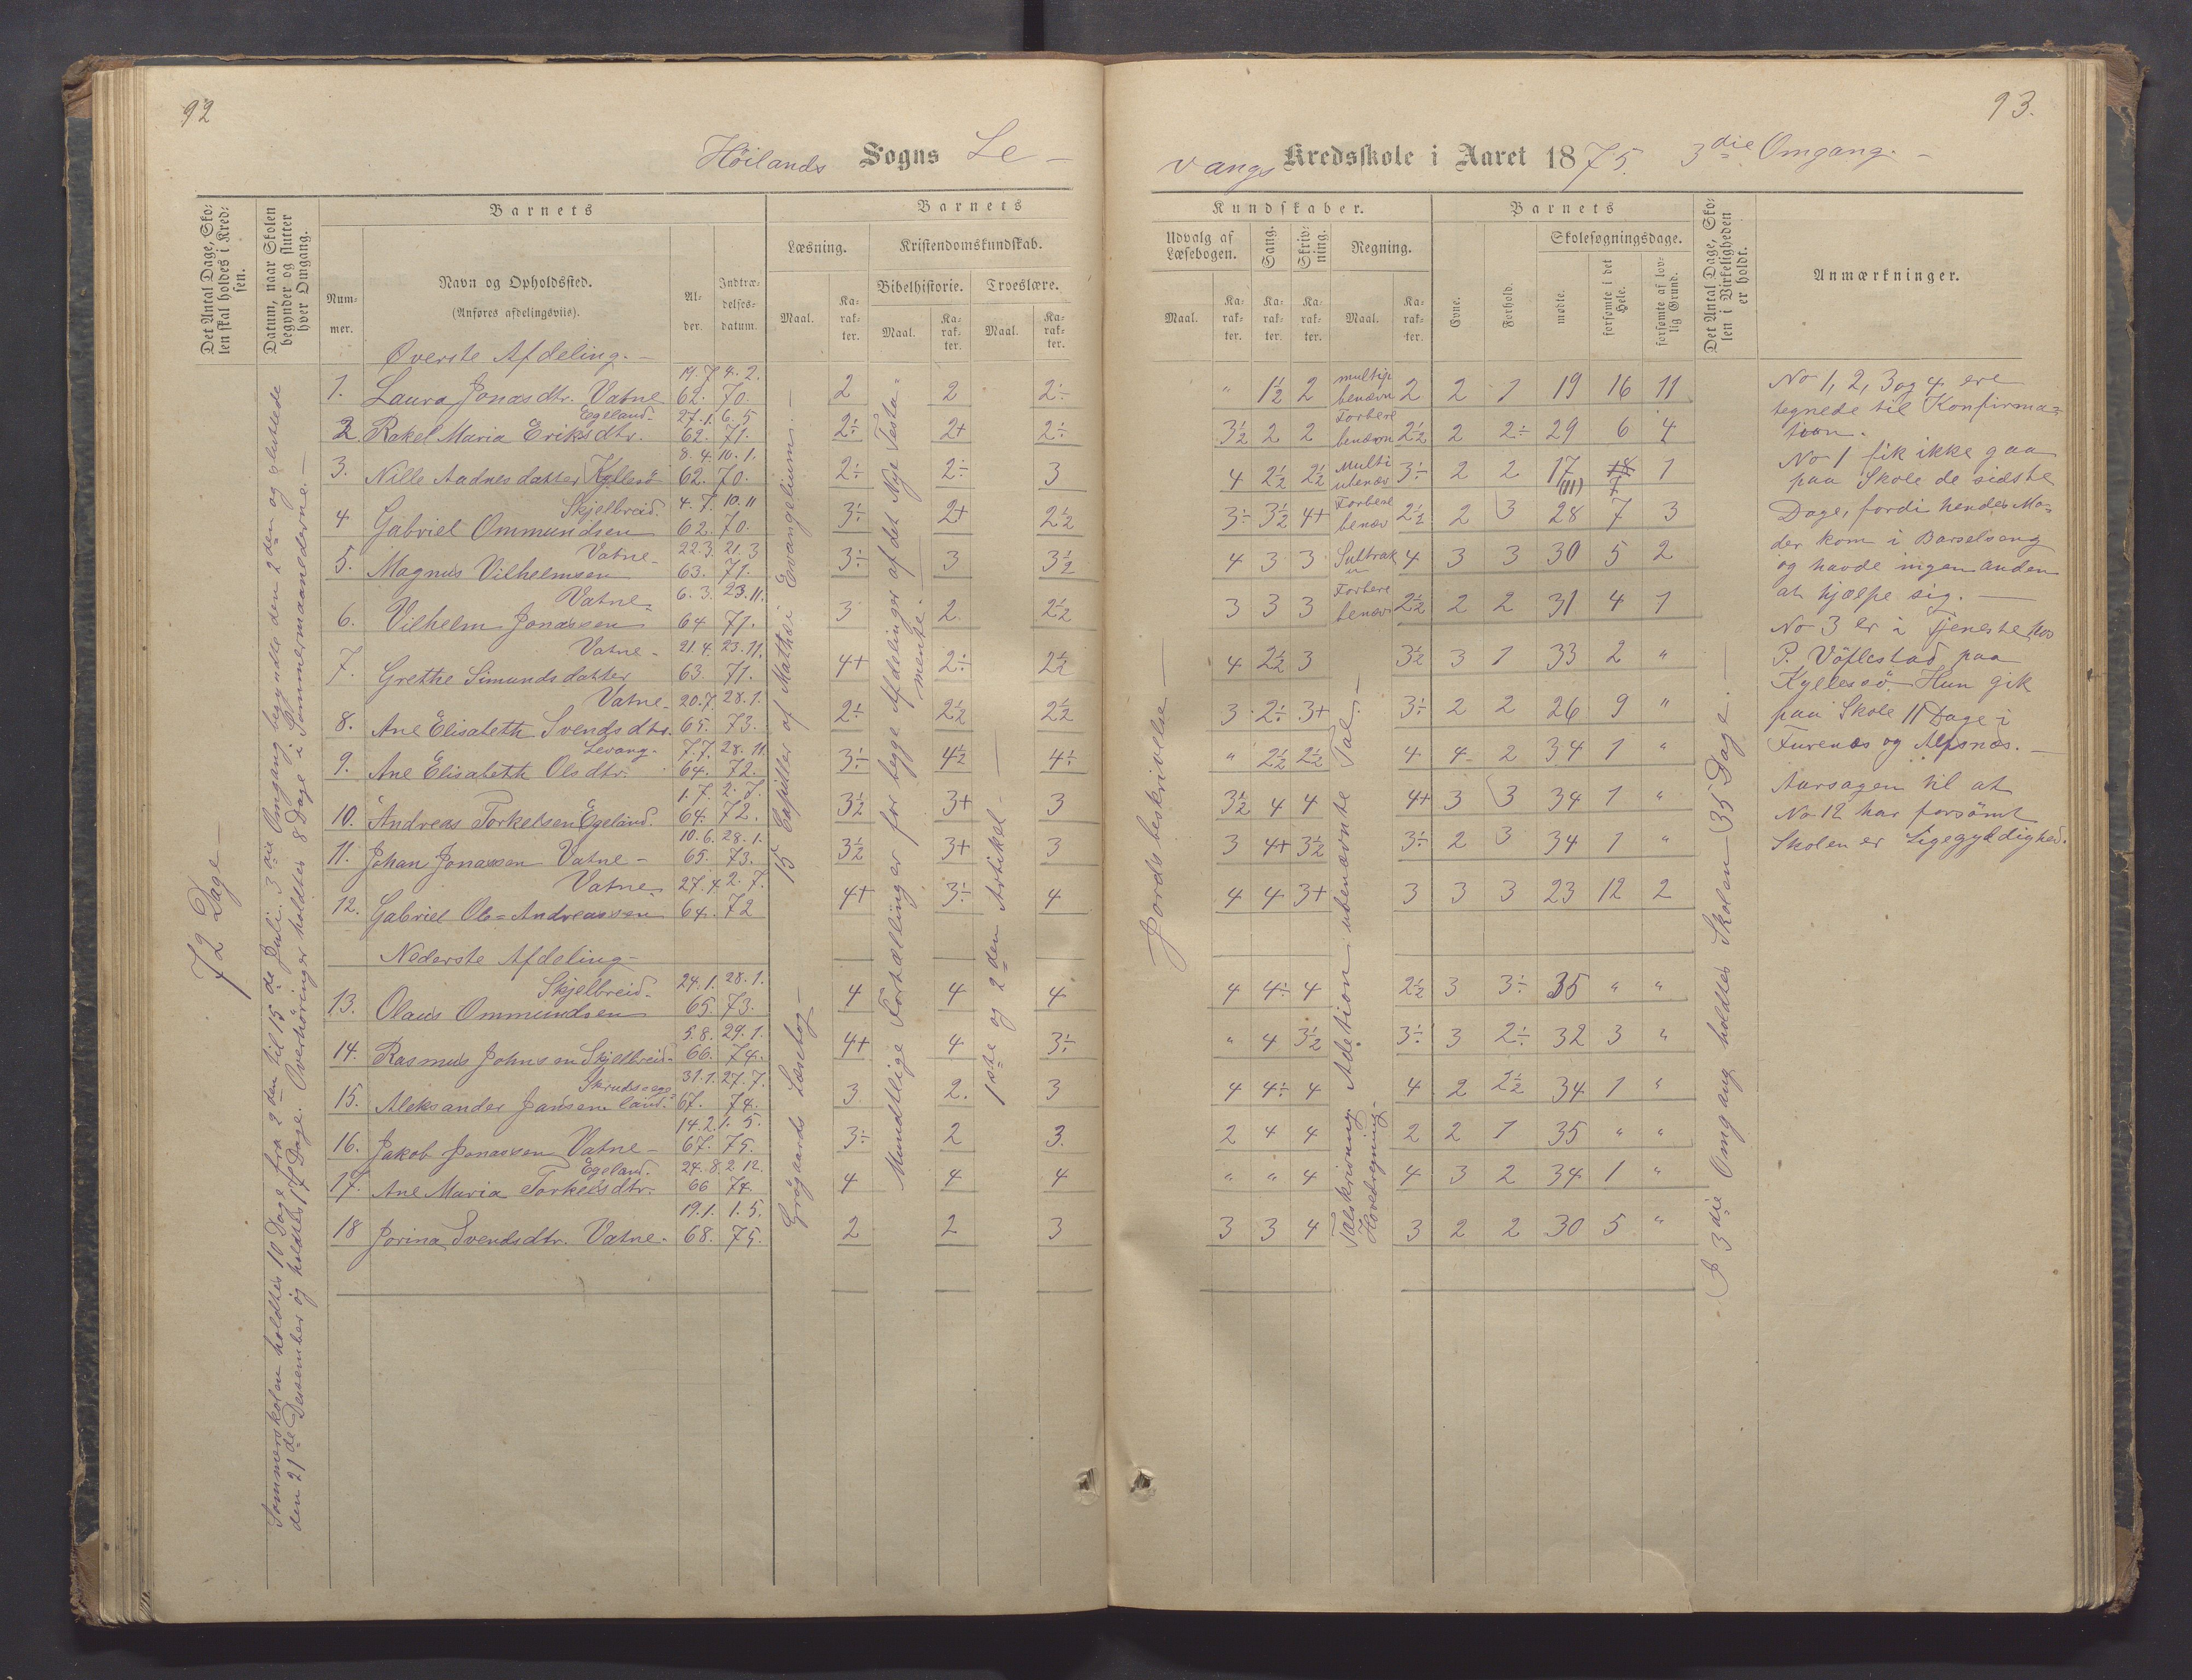 92
Höilands Sogns Le-
Det Antal Dage, Sko-
len skal holdes i Kred-
sen.
Datum, naar Skolen
begynder og slutter
hver Omgang.
Barnets
Num-
mer.
Navn og Opholdssted.
(Anføres afdelingsviis).
Al-
der.
Indtræ-
delses-
datum.
Barnets
Læsning.
Maal.
Ka-
rak-
ter.
Kristendomskundskab.
Bibelhistorie.
Maal.
Ka-
rak-
ter.
Troeslære.
Maal.
Ka-
rak-
ter.
72 Dage
Sommerskolen holdtes 10 Dage fra 2den til 15de Juli. 3die Omgang begyndte den 2den og sluttede
den 21de Desember og holdtes 17 Dage. Overhöringer holdtes 8 Dage i Sommermaanederne.
Øverste Afdeling.
1. Laura Jonasdtr. Vatne 14.7.62. 4.2.70. 2 2 2÷
2 Rakel Maria Eriksdtr. Egeland. 27.1.62. 6.5.71. 2÷ 2+ 2÷
3. Nille Aadnesdatter Kyllesö 8.4.62. 10.1.70. 2÷ 2÷ 3
4 Gabriel Ommundsen Skjelbreid. 4.7.62. 10.11.70. 3÷ 2+ 2½
5. Magnus Vilhelmsen Vatne 22.3.63. 21.3.71. 3÷ 3 3½
6. Vilhelm Jonassen Vatne. 6.3.64 23.11.71. 3 2. 2½
7. Grethe Simundsdatter Vatne 21.4.63. 23.11.71. 4+ 2÷ 2½
8. Ane Elisabeth Svendsdtr. Vatne 20.7.65. 28.1.73. 2÷ 2½ 2½
9. Ane Elisabeth Olsdtr. Levang. 7.7.64. 28.11.72. 3÷ 4½ 4÷
10. Andreas Torkelsen Egeland. 1.7.64. 2.7.72. 3½ 3+ 3
11. Johan Jonassen Vatne 10.6.65. 28.1.73. 3½ 3+ 3
12. Gabriel Ole-Andreassen Vatne. 27.4.64. 2.7.72 4+ 3÷ 4
Nederste Afdeling
13. Olaus Ommundsen Skjelbreid. 24.1.65. 28.1.73. 4 4 4
14. Rasmus Johnsen Skjelbreid. 5.8.66. 29.1.74. 4+ 4 3÷
15. Aleksander Jansen 31.1.67. 27.7.74. 3 2. 3
16. Jakob Jonassen Vatne 14.2.67. 1.5.75. 3÷ 2 3.
17. Ane Maria Torkelsdtr. Egeland. 24.8.66 2.12.74. 4 4 4
18 Jorina Svendsdtr. Vatne. 19.1.68. 1.5.75. 2 2 3
15 Capitler af Mathæi Evangelium.
Grögaards Læsebog
Mundtlige Fortællinger for begge Afdelinger af det Nye Testa-
mente.
1ste og 2den Artikel
93.
vangs Kredsskole i Aaret 1875. 3die Omgang.
Kundskaber.
Udvalg af
Læsebogen.
Maal.
Ka-
rak-
ter.
Sang.
Ka-
rak-
ter.
Skriv-
ning.
Ka-
rak-
ter.
Regning.
Maal.
Ka-
rak-
ter.
Barnets
Evne.
Forhold.
Skolesøgningsdage.
mødte.
forsømte i det
Hele.
forsømte af lov-
lig Grund.
Det Antal Dage, Sko-
len i Virkeligheden
er holdt.
Anmærkninger.
Jordsbeskrivelse
" 1½ 2 multip benævn 2 2 1 19 16 11
3½ 2 2 Forbere benævn 2½ 2 2÷ 29 6 4
4 2½ 2½ Multi ubenæv 3÷ 2 2 17 (11) 7 1
3÷ 3½ 4+ Forbere benæv 2½ 2 3 28 7 3
4 3 3 Subtrak u 4 3 3 30 5 2
3 3 3 Forbere benævn 2½ 2 2 31 4 1
4 2½ 3 3½ 3 1 33 2 "
3 2÷ 3+ 3÷ 2 2 26 9 "
" 2½ 2½ 4 4 2 34 1 "
3½ 4 4 4+ 3 3 34 1 "
3 4+ 3½ 3÷ 2 3 34 1 "
4 4 3+ 3 3 3 23 12 2
4 4÷ 4 2½ 3 3÷ 35 " "
" 4 3½ 3÷ 3 2÷ 32 3 "
4 4÷ 4 4 2 2½ 34 1 "
2 4 4 2 2 1 35 " "
" " 4 4 3 2 34 1 "
3 3 4 3 2 2 30 5 "
Adetion ubenævnte Tal.
Talskrivning
Hovedregning.
I 3die Omgang holdtes Skolen 35 Dage.
No 1, 2, 3 og 4 ere
tegnede til Konfirma-
tion.
No 1 fik ikke gaa
paa Skole de sidste
Dage, fordi hendes Mo-
der kom i Barselseng
og havde ingen anden
at hjælpe sig.
No 3 er i tjeneste hos
P. Vöflestad paa
Kyllesö. Hun gik
paa Skole 11 Dage i
Furenæs og Alfsnæs.
Aarsagen til at
No 12 har forsömt
Skolen er Ligegyldighed.